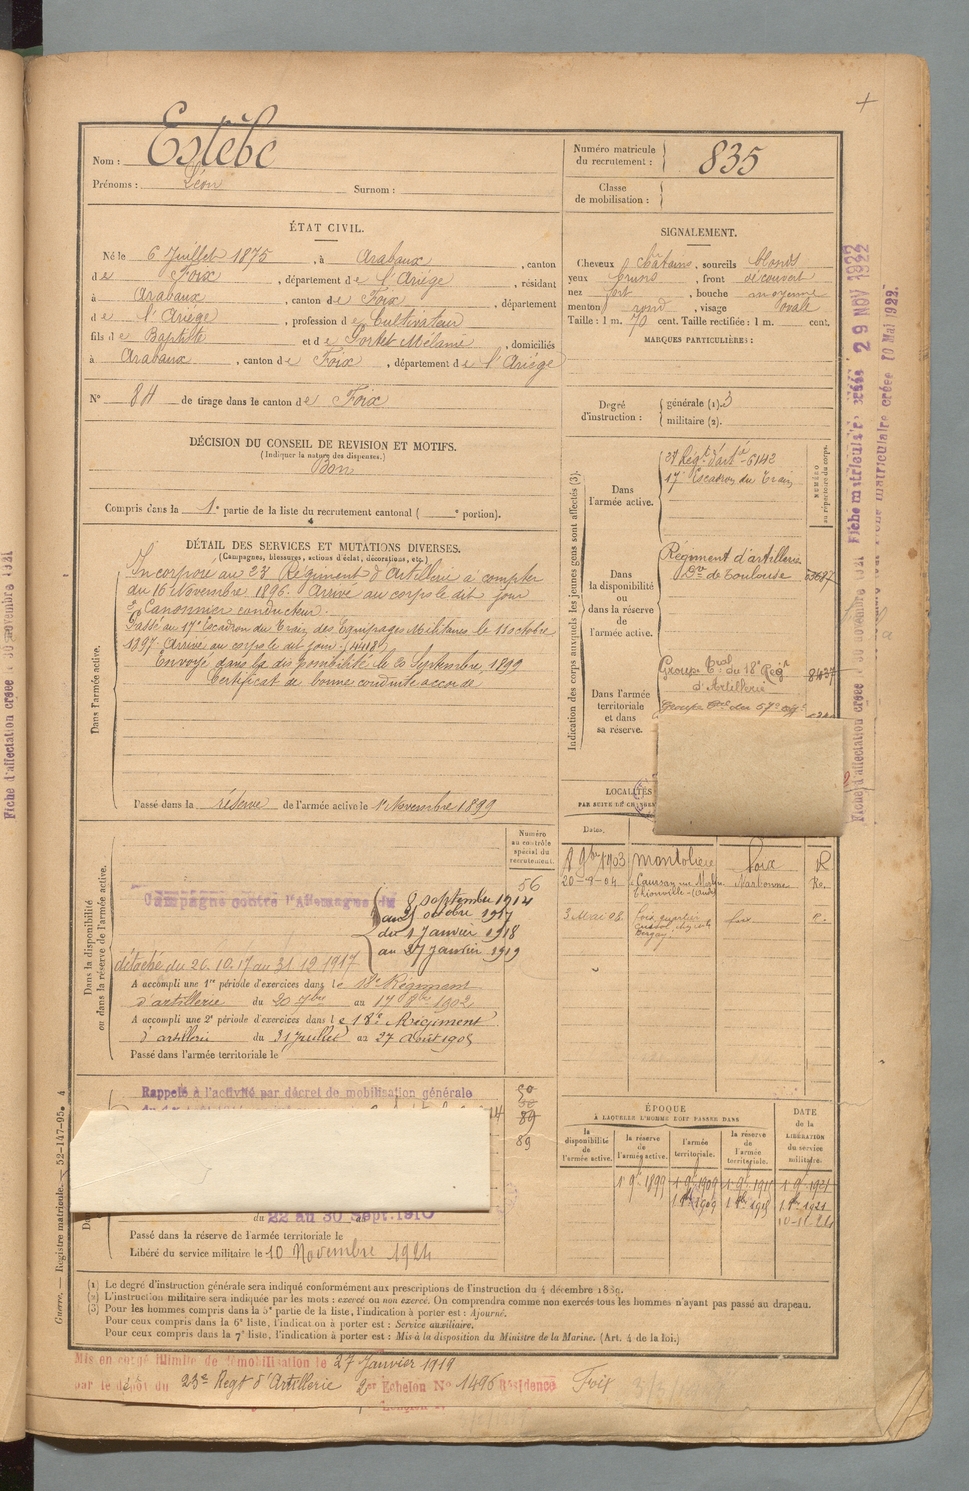 Nom : Estèbe
Prénoms : Léon Surnom :
Numéro matricule du recrutement : 835
Classe de mobilisation :
ÉTAT CIVIL.
Né le 6 Juillet 1875, à Arabaux, canton
de Foix, département de l'Ariège, résidant
à Arabaux, canton de Foix, département
de l'Ariège, profession de Cultivateur
fils de Baptiste et de Portet Mélanie, domiciliés
à Arabaux, canton de Foix, département de l'Ariège
N° 84 de tirage dans le canton de Foix
SIGNALEMENT.
Cheveux châtains, sourcils blonds
yeux bruns, front découvert
nez fort, bouche moyenne
menton rond, visage ovale
Taille : 1 m. 70 cent. Taille rectifiée : 1 m. cent.
MARQUES PARTICULIÈRES :
Degré d'instruction : générale (1). 3
militaire (2).
DÉCISION DU CONSEIL DE REVISION ET MOTIFS.
(Indiquer la nature des dispenses.)
Bon
Compris dans la 1e partie de la liste du recrutement cantonal ( e portion).
DÉTAIL DES SERVICES ET MUTATIONS DIVERSES.
(Campagnes, blessures, actions d'éclat, décorations, etc.)
Dans l'armée active.
Incorporé au 23e Régiment d'Artillerie à compter
du 16 Novembre 1896. Arrivé au corps le dit jour
2e Canonnier conducteur.
Passé au 17e Escadron du Train des Equipages Militaires le 11 octobre
1897. Arrivé au corps le dit jour.
Envoyé dans la disponibilité le 20 Septembre 1899
Certificat de bonne conduite accordé
Passé dans la réserve de l'armée active le 1er Novembre 1899
Indication des corps auxquels les jeunes gens sont affectés (3).
NUMÉRO au répertoire du corps.
Dans l'armée active.
17e Escadron du Train
Dans la disponibilité ou dans la réserve de l'armée active.
Régiment d'artillerie
de Toulouse
Dans l'armée territoriale et dans sa réserve.
Groupe Tal du 18e Régt
d'Artillerie
LOCALITÉS
Dates.
Montoliere Foix R
20-9-04 Narbonne
3 Mai 98
Foix R.
Dans la disponibilité ou dans la réserve de l'armée active.
Numéro au contrôle spécial du recrutement.
56
Campagne contre l'Allemagne du 8 septembre 1914
au 25 octobre 1917
du 1 Janvier 1918
au 27 janvier 1919
détaché du 26.10.17 au 31 12 1917
A accompli une 1re période d'exercices dans le 18e Régiment
d'artillerie du 20 7bre au 17 8bre 1902
A accompli une 2e période d'exercices dans le 18e Régiment
d'artillerie du 31 juillet au 27 Août 1905
Passé dans l'armée territoriale le
Rappelé à l'activité par décret de mobilisation générale
89
89
du 22 au 30 Sept. 1910
Passé dans la réserve de l'armée territoriale le
Libéré du service militaire le 10 Novembre 1924
ÉPOQUE
À LAQUELLE L'HOMME DOIT PASSER DANS
DATE de la LIBÉRATION du service militaire.
la disponibilité de l'armée active.
la réserve de l'armée active.
l'armée territoriale.
la réserve de l'armée territoriale.
1 9bre 1899 1 9bre 1909
10-11-24
(1) Le degré d'instruction générale sera indiqué conformément aux prescriptions de l'instruction du 4 décembre 1889.
(2) L'instruction militaire sera indiquée par les mots : exercé ou non exercé. On comprendra comme non exercés tous les hommes n'ayant pas passé au drapeau.
(3) Pour les hommes compris dans la 5e partie de la liste, l'indication à porter est : Ajourné.
Pour ceux compris dans la 6e liste, l'indication à porter est : Service auxiliaire.
Pour ceux compris dans la 7e liste, l'indication à porter est : Mis à la disposition du Ministre de la Marine. (Art. 4 de la loi.)
Mis en congé illimité de démobilisation le 27 Janvier 1919
par le dépôt du 23e Regt d'Artillerie 2me Echelon N° 1496 Résidence Foix
Guerre. — Registre matricule. — 52-147-95. 4
Fiche d'affectation créée 30 novembre 1921
Fiche matriculaire créée 29 NOV 1922
Fiche d'affectation créée 30 novembre 1921
matriculaire créée 10 Mai 1922.